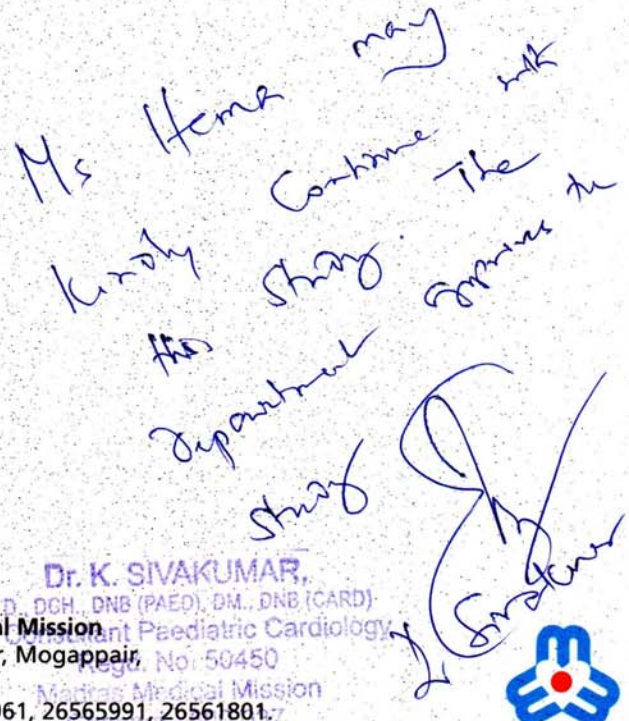 Ms Hema may
kindly continue with
this study. The
Department approves the
study
K Sivakumar
Dr. K. SIVAKUMAR,
D., DCH., DNB (PAED), DM., DNB (CARD)
Consultant Paediatric Cardiology
Regd. No. 50450
Madras Medical Mission
al Mission
r, Mogappair,
061, 26565991, 26561801,